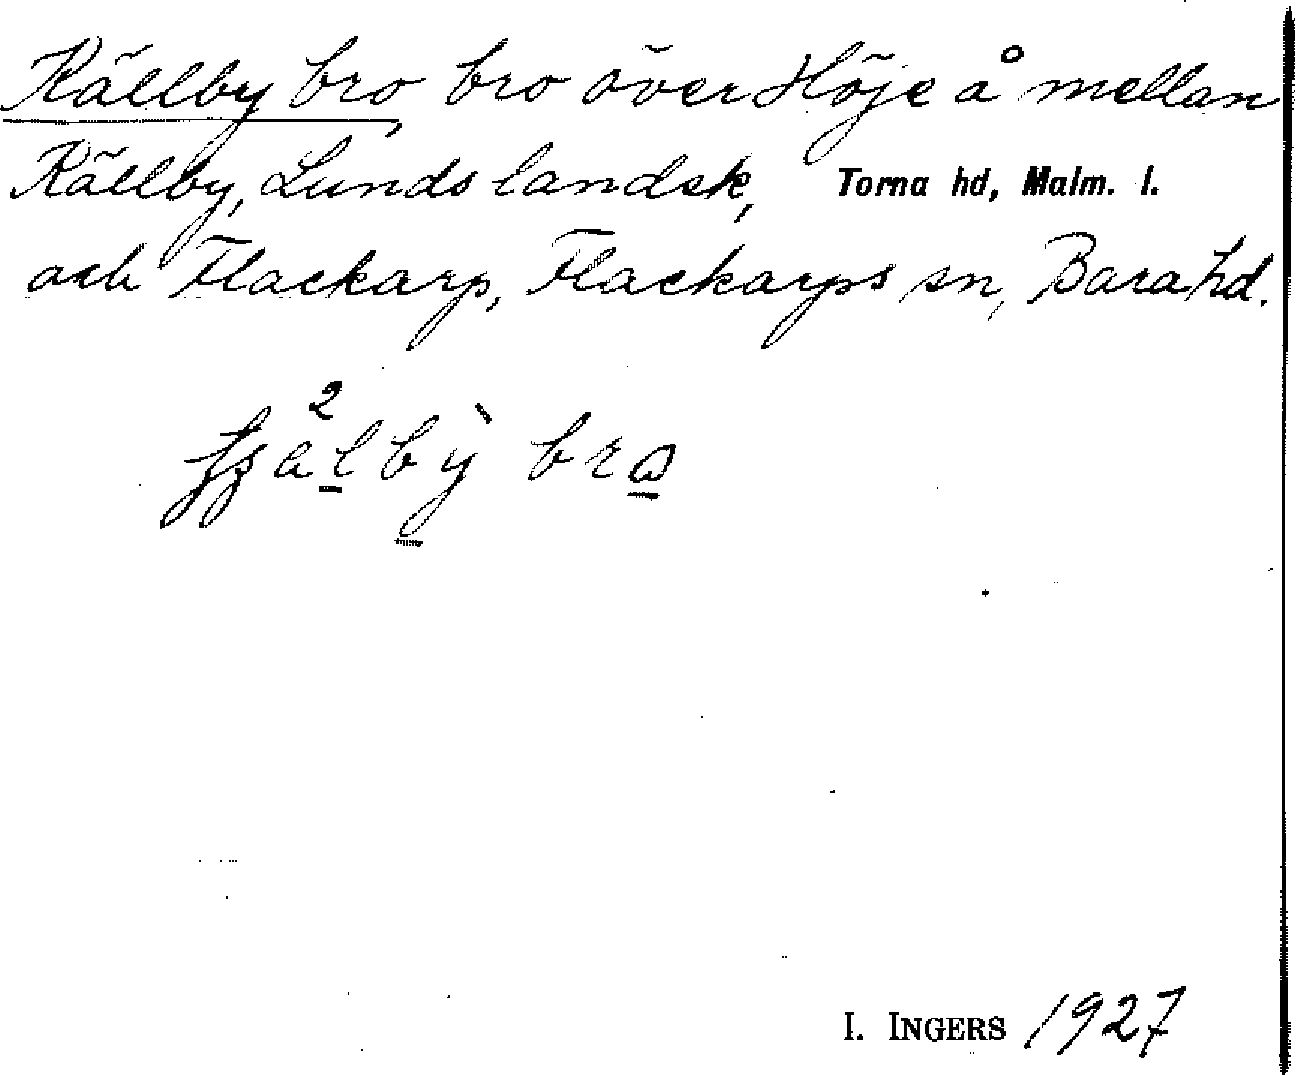 Källby bro, bro över Höje å mellan
Källby, Lunds landsk, Torna hd, Malm. l.
och Flackarp, Flackarps sn, Bara hd.
bro
I. INGERS 1927